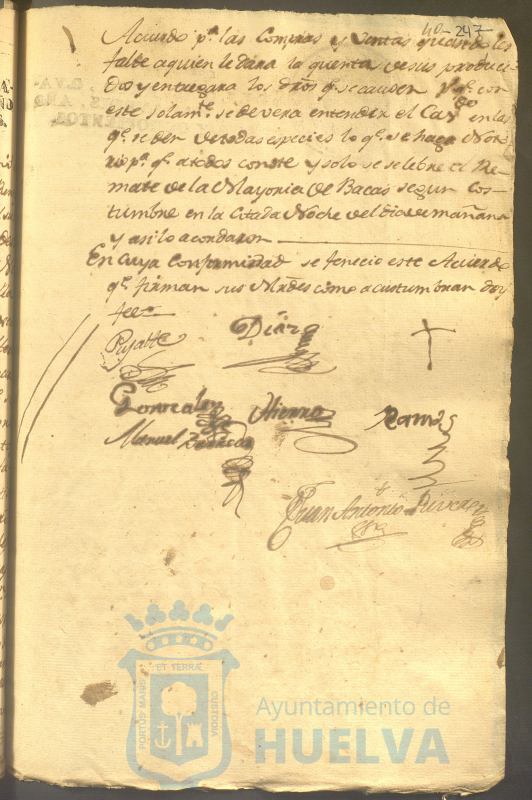 40-247
Acuerdo pª. las Compras y Ventas que sele
falde a quien le dara la quenta de sus produci
dos y entregara los dros q. se causen y q. con
este solamte. se devera entender el Cargo en las
q. se den de todas especies lo q. se haga Noto
rio pª. q. a todos conste y solo se selebre el Re-
mate de la Mayoria de Bacas segun cos-
tumbre en la Citada Noche del dia de mañana
y asi lo acordaron
En cuya Conformidad se fenecio este Acuerdo
q. firman sus Mrdes como acustumbran doy
fee
Pujalte Diaz
Gonzales Hierro Ramos
Manuel
Juan Antonio Rivera
PORTUS MARIS ET TERRÆ CUSTODIA
Ayuntamiento de
HUELVA